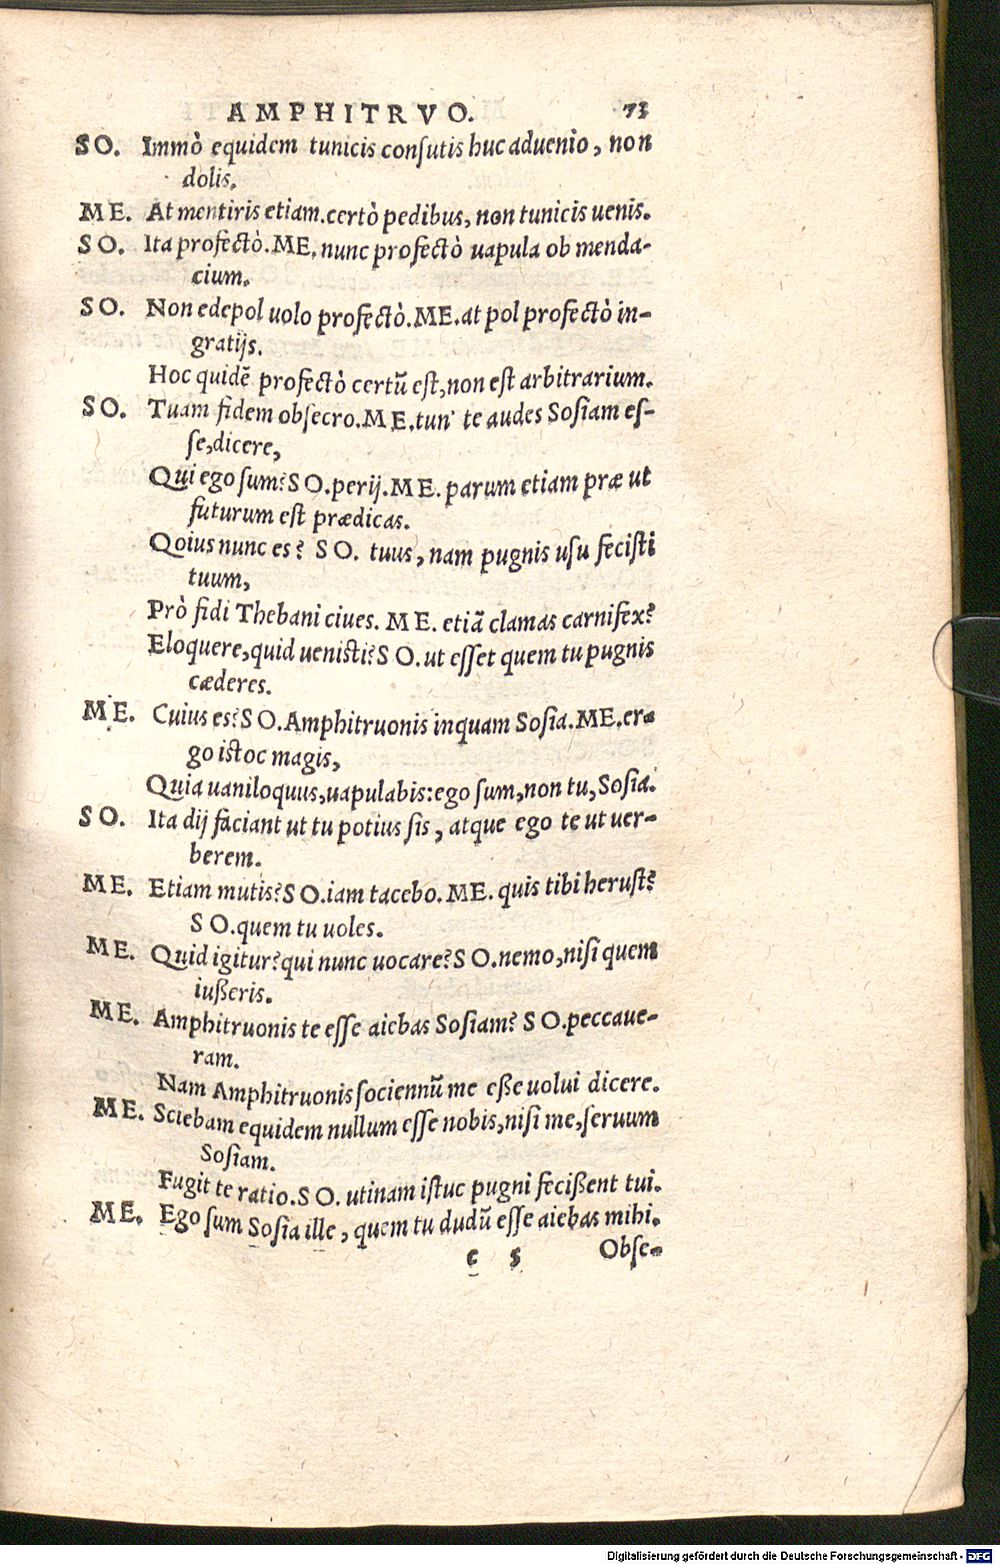 AMPHITRVO. 73
SO. Immò equidem tunicis conſutis huc aduenio, non
dolis.
ME. At mentiris etiam. certò pedibus, non tunicis uenis.
SO. Ita profectò. ME. nunc profectò uapula ob menda-
cium.
SO. Non edepol uolo profectò. ME. at pol profectò in-
gratijs.
Hoc quidẽ profectò certũ eſt, non eſt arbitrarium.
SO. Tuam fidem obſecro. ME. tun' te audes Soſiam eſ-
ſe, dicere,
Qui ego ſum? SO. perij. ME. parum etiam præ ut
futurum eſt prædicas.
Quoius nunc es? SO. tuus, nam pugnis uſu feciſti
tuum,
Prò fidi Thebani ciues. ME. etiã clamas carnifex?
Eloquere, quid ueniſti? SO. ut eſſet quem tu pugnis
cæderes.
ME. Cuius es? SO. Amphitruonis inquam Soſia. ME. er-
go iſtoc magis,
Quia uaniloquus, uapulabis: ego ſum, non tu, Soſia.
SO. Ita dij faciant ut tu potius ſis, atque ego te ut uer-
berem.
ME. Etiam mutis? SO. iam tacebo. ME. quis tibi heruſt?
SO. quem tu uoles.
ME. Quid igitur? qui nunc uocare? SO. nemo, niſi quem
iußeris.
ME. Amphitruonis te eſſe aiebas Soſiam? SO. peccaue-
ram.
Nam Amphitruonis ſociennũ me eße uolui dicere.
ME. Sciebam equidem nullum eſſe nobis, niſi me, ſeruum
Soſiam.
Fugit te ratio. SO. utinam iſtuc pugni fecißent tui.
ME. Ego ſum Soſia ille, quem tu dudũ eſſe aiebas mihi.
c 5 Obſe-
Digitalisierung gefördert durch die Deutsche Forschungsgemeinschaft - DFG